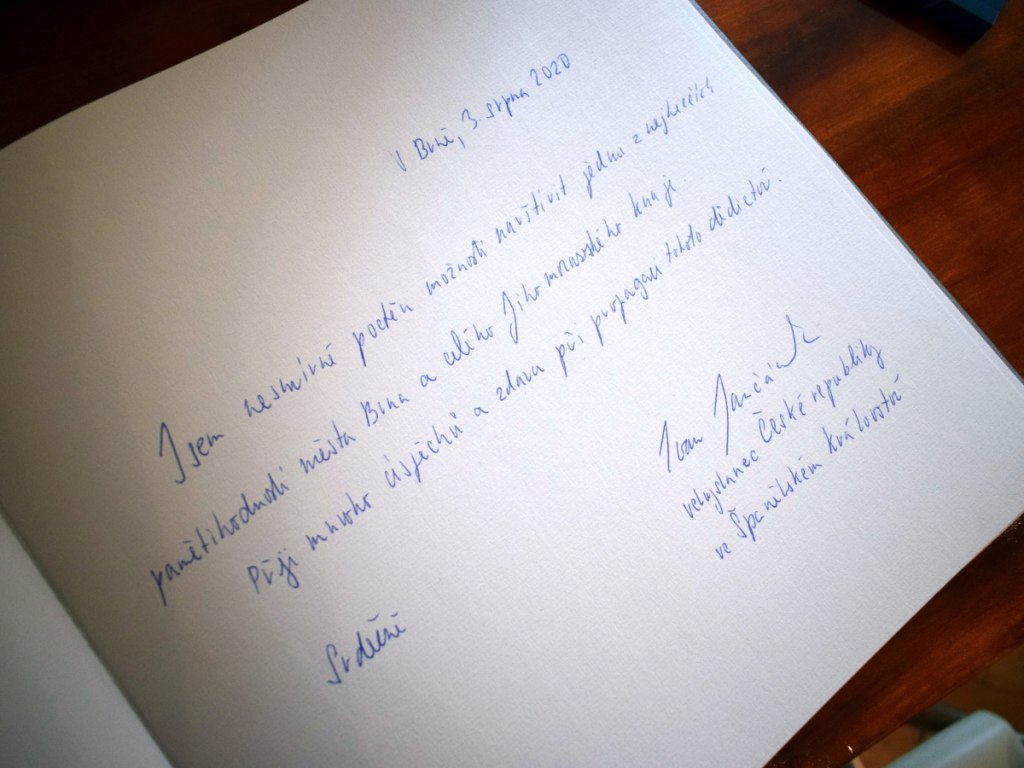 V Brně, 3. srpna 2020
Jsem nesmírně poctěn možností navštívit jednu z nejhezčích
pamětihodností města Brna a celého Jihomoravského kraje.
Přeji mnoho úspěchů a zdaru při propagaci tohoto dědictví.
Srdečně
Ivan Jančárek
velvyslanec České republiky
ve Španělském království